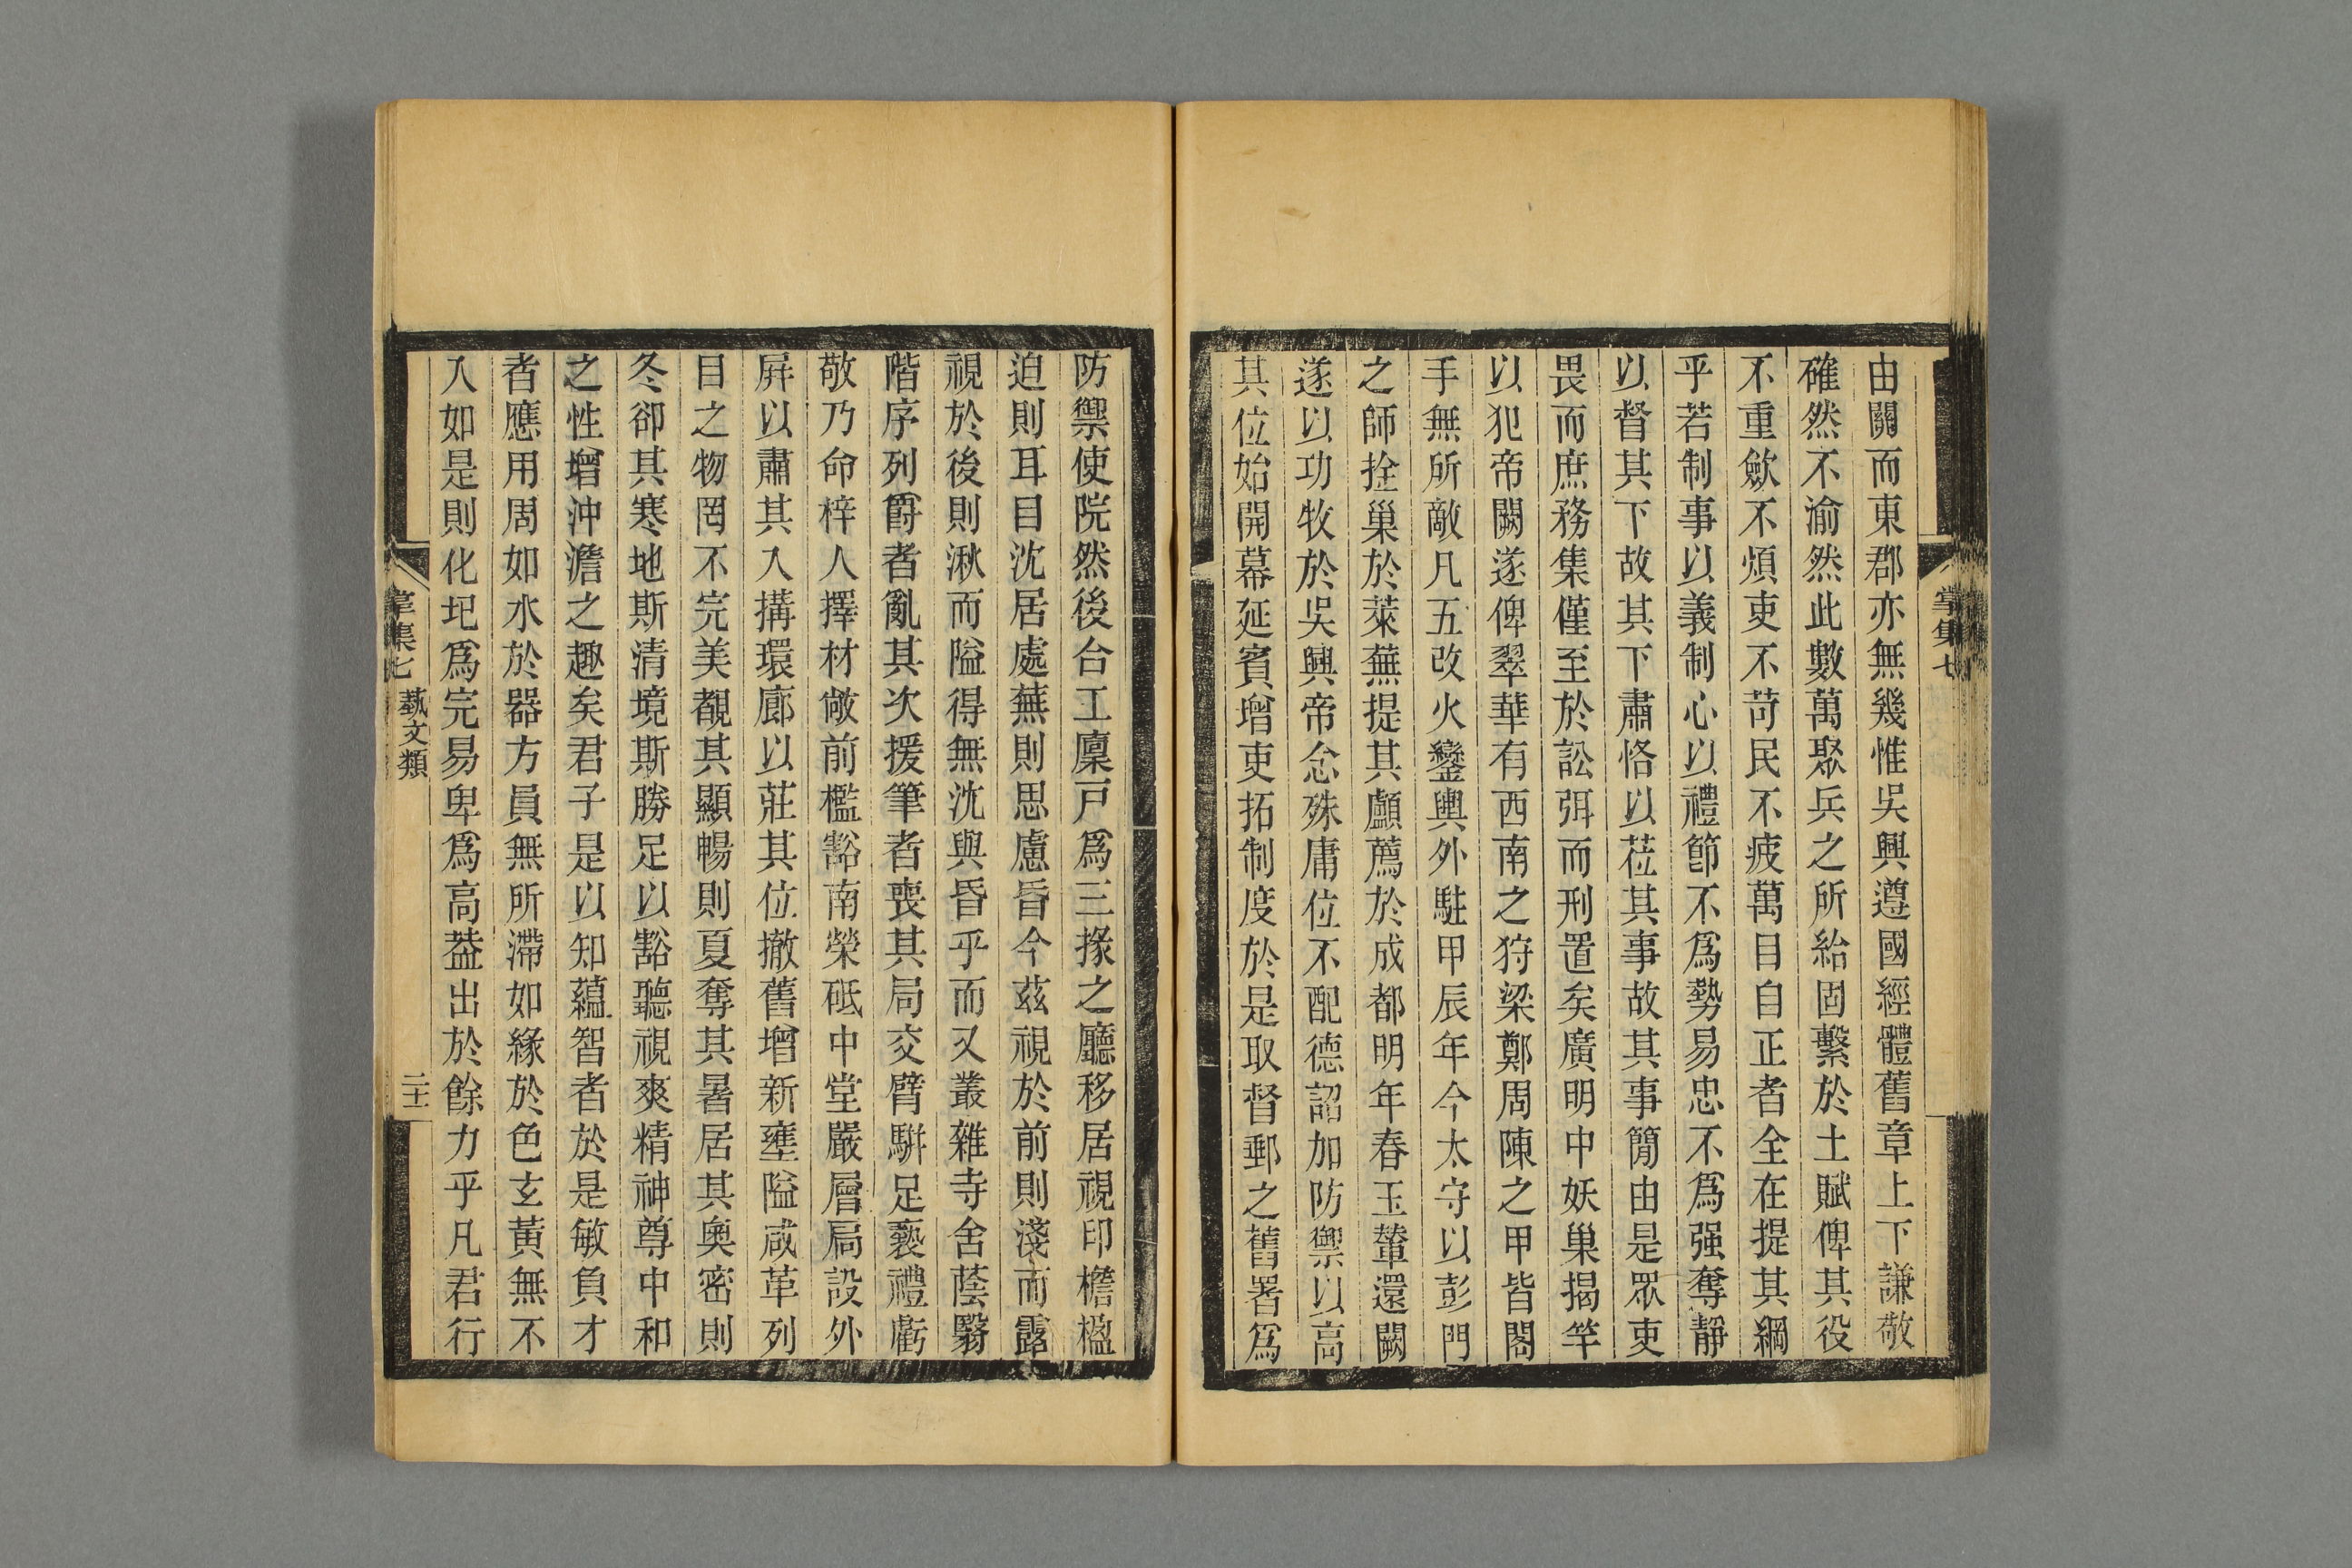 由關而東郡亦無幾惟吳興遵國經體舊章上下謙敬
確然不渝然此數萬聚兵之所給固繫於土賦俾其役
不重歛不煩吏不苛民不疲萬目自正者全在提其綱
乎若制事以義制心以禮節不爲勢易忠不爲强奪靜
以督其下故其下肅恪以莅其事故其事簡由是眾吏
畏而庶務集僅至於訟弭而刑置矣廣明中妖巢揭竿
以犯帝闕遂俾翠華有西南之狩梁鄭周陳之甲皆閣
手無所敵凡五改火鑾輿外駐甲辰年今太守以彭門
之師拴巢於萊蕪提其顱薦於成都明年春玉輦還闕
遂以功牧於吳興帝念殊庸位不配德詔加防禦以高
其位始開幕延賓增吏拓制度於是取督郵之舊署爲
掌集七
防禦使院然後台工廩戸爲三掾之廳移居視印檐楹
迫則耳目沈居處蕪則思慮昏今茲視於前則淺而露
視於後則湫而隘得無沈與昏乎而又叢雜寺舍蔭翳
階序列爵者亂其次援筆者喪其局交臂駢足褻禮虧
敬乃命梓人擇材敞前檻豁南榮砥中堂嚴層扃設外
屏以肅其入搆環廊以莊其位撤舊增新壅隘咸革列
目之物罔不完美覩其顯暢則夏奪其暑居其奧密則
冬卻其寒地斯清境斯勝足以豁聽視爽精神尊中和
之性增沖澹之趣矣君子是以知蘊智者於是敏負才
者應用周如水於器方員無所滯如緣於色玄黃無不
入如是則化圮爲完易卑爲高葢出於餘力乎凡君行
掌集七 藝文類 二十二